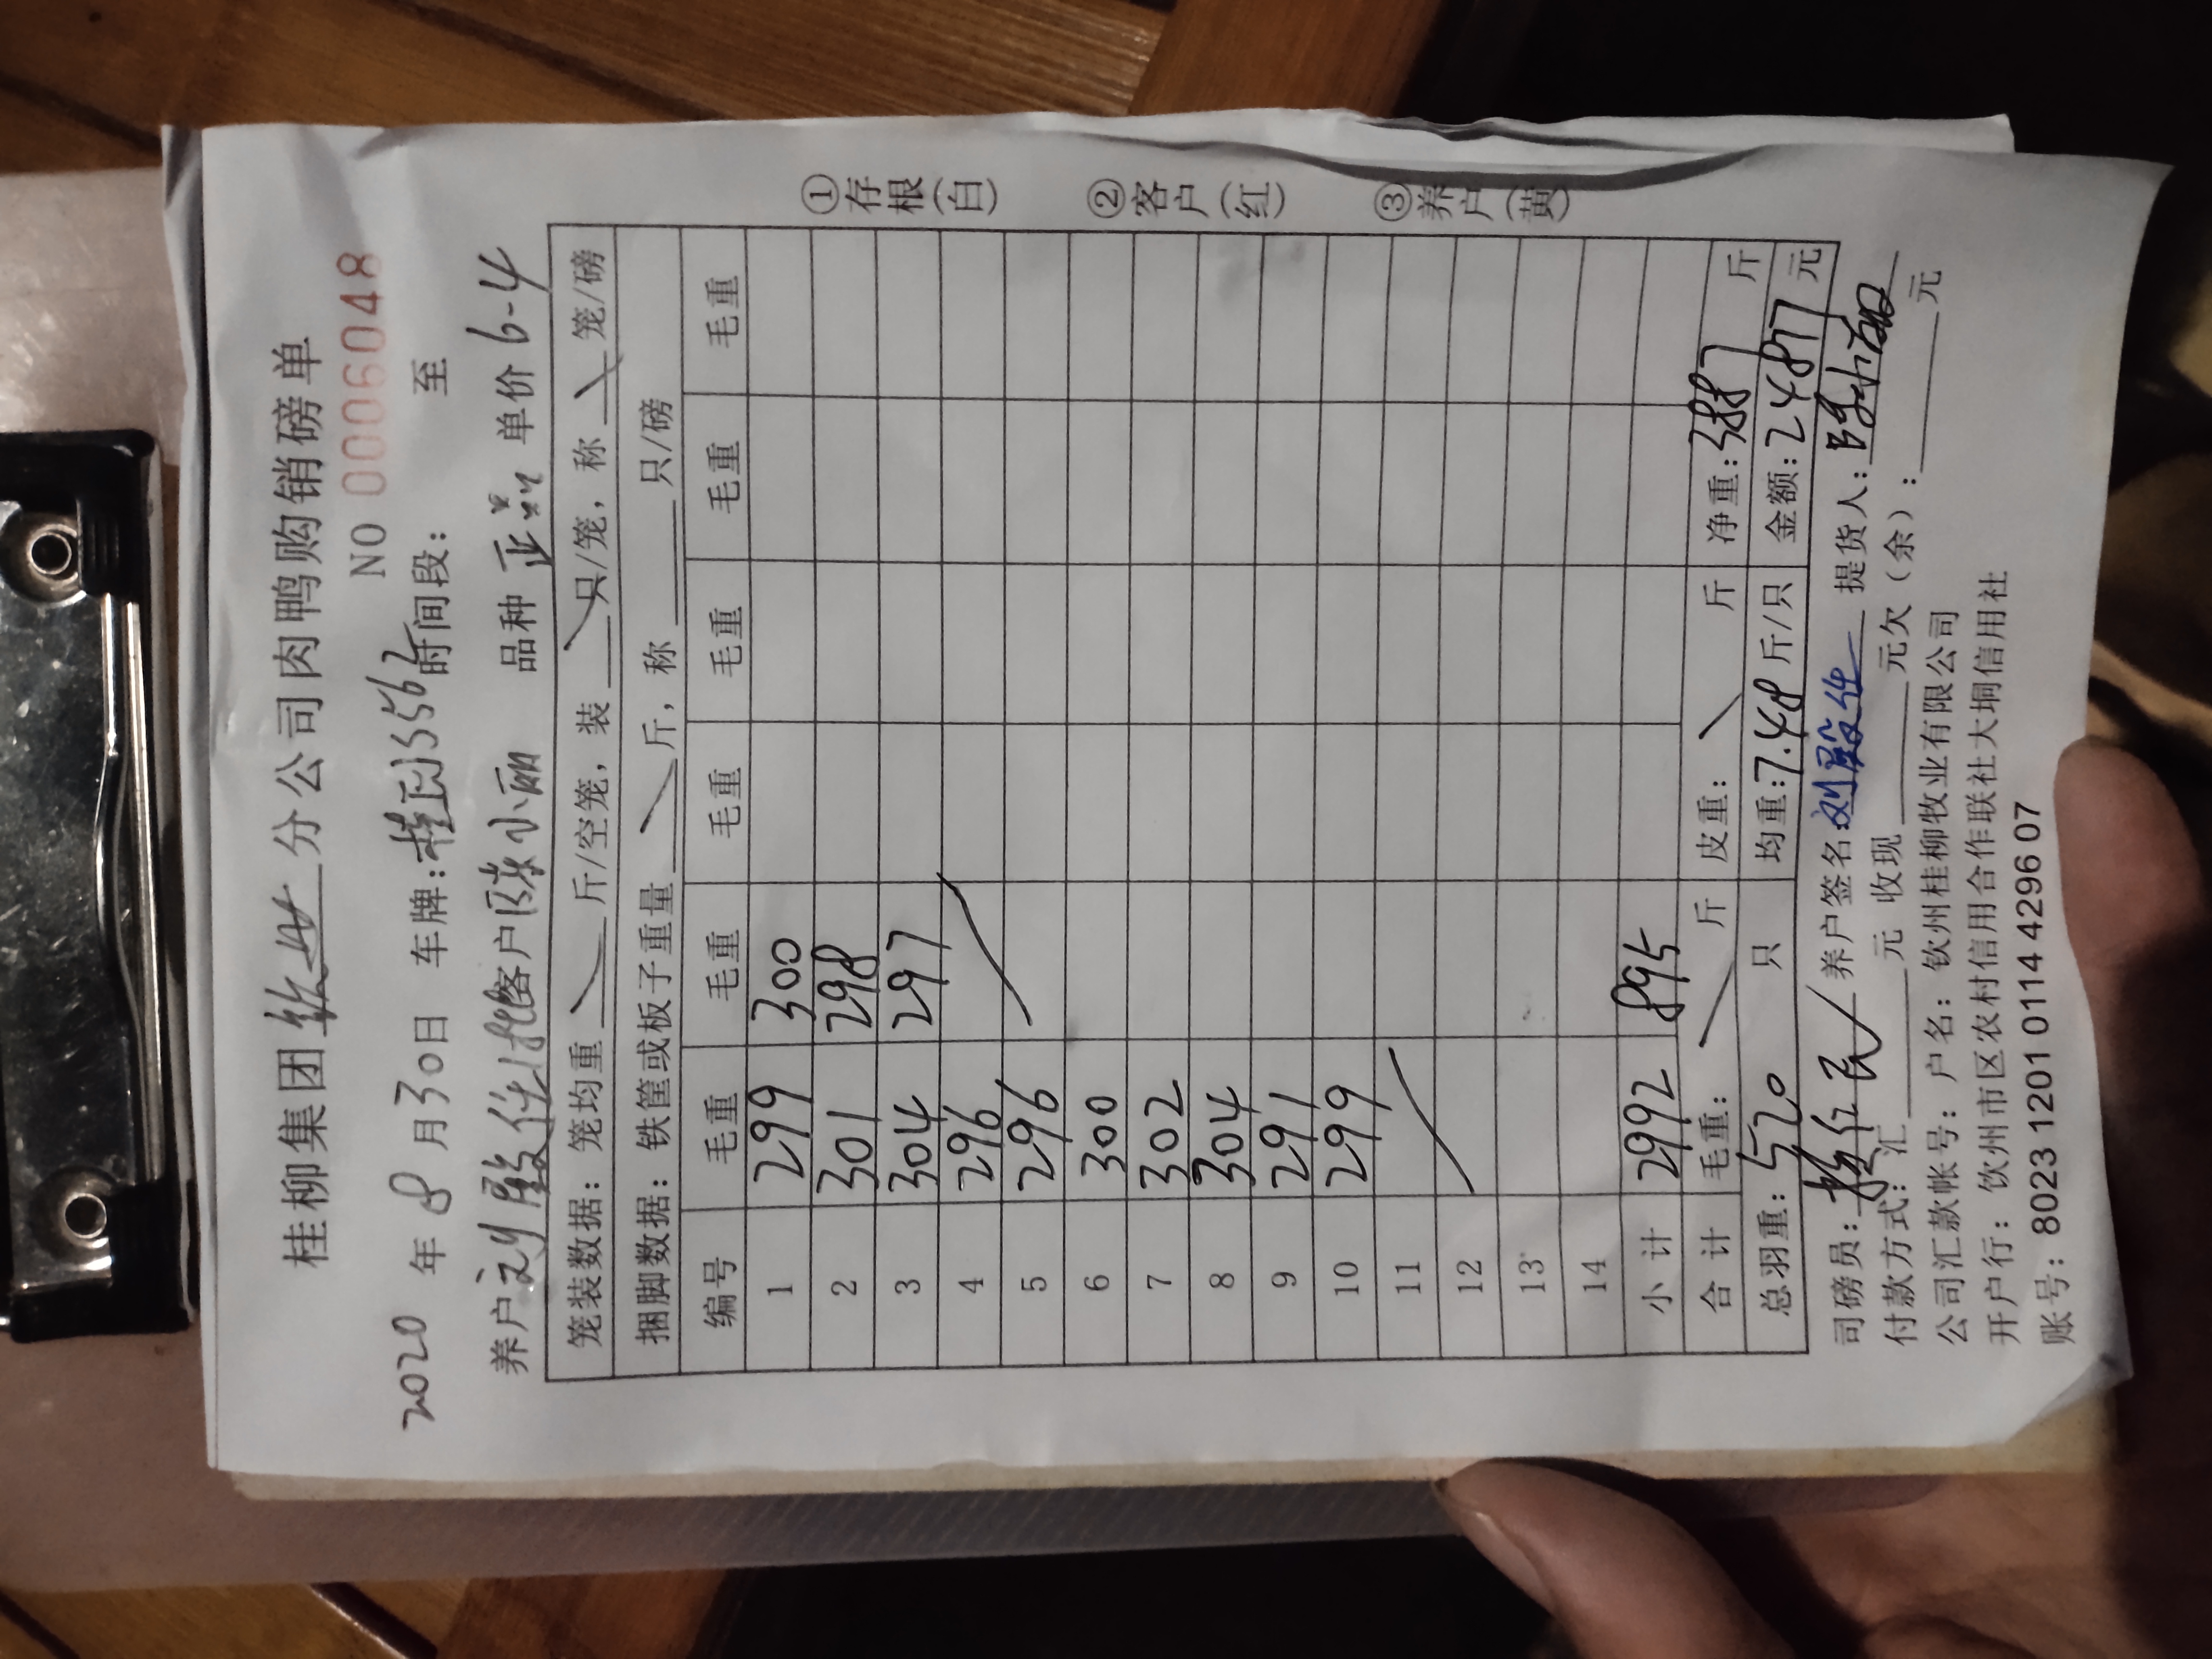 桂柳集团 钦州 分公司肉鸭购销磅单
NO 0006048
2020 年 8 月 30 日 车牌: 时间段: 至
养户 客户 陈小丽 品种 正品 单价 6-4
笼装数据: 笼均重 斤/空笼, 装 只/笼, 称 笼/磅
捆脚数据: 铁筐或板子重量 斤, 称 只/磅
编号 毛重 毛重 毛重 毛重 毛重 毛重
1 299 300
2 301 298
3 304 297
4 296
5 296
6 300
7 302
8 304
9 291
10 299
11
12
13
14
小计 2992 895
合计 毛重: 斤 皮重: 斤 净重: 3887 斤
总羽重: 520 只 均重: 7.48 斤/只 金额: 24877 元
司磅员: 养户签名: 提货人:
付款方式: 汇 元 收现 元欠(余): 元
公司汇款帐号: 户名: 钦州桂柳牧业有限公司
开户行: 钦州市区农村信用合作联社大垌信用社
账号: 8023 1201 0114 4296 07
①存根(白)
②客户(红)
③养户(黄)